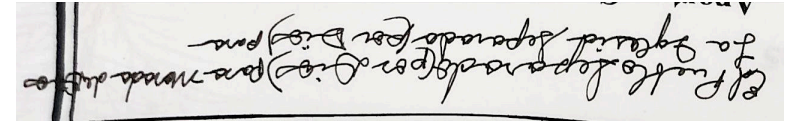 El Pueblo separado (por Dios) para morada de Dios
La Iglesia separada (por Dios) para